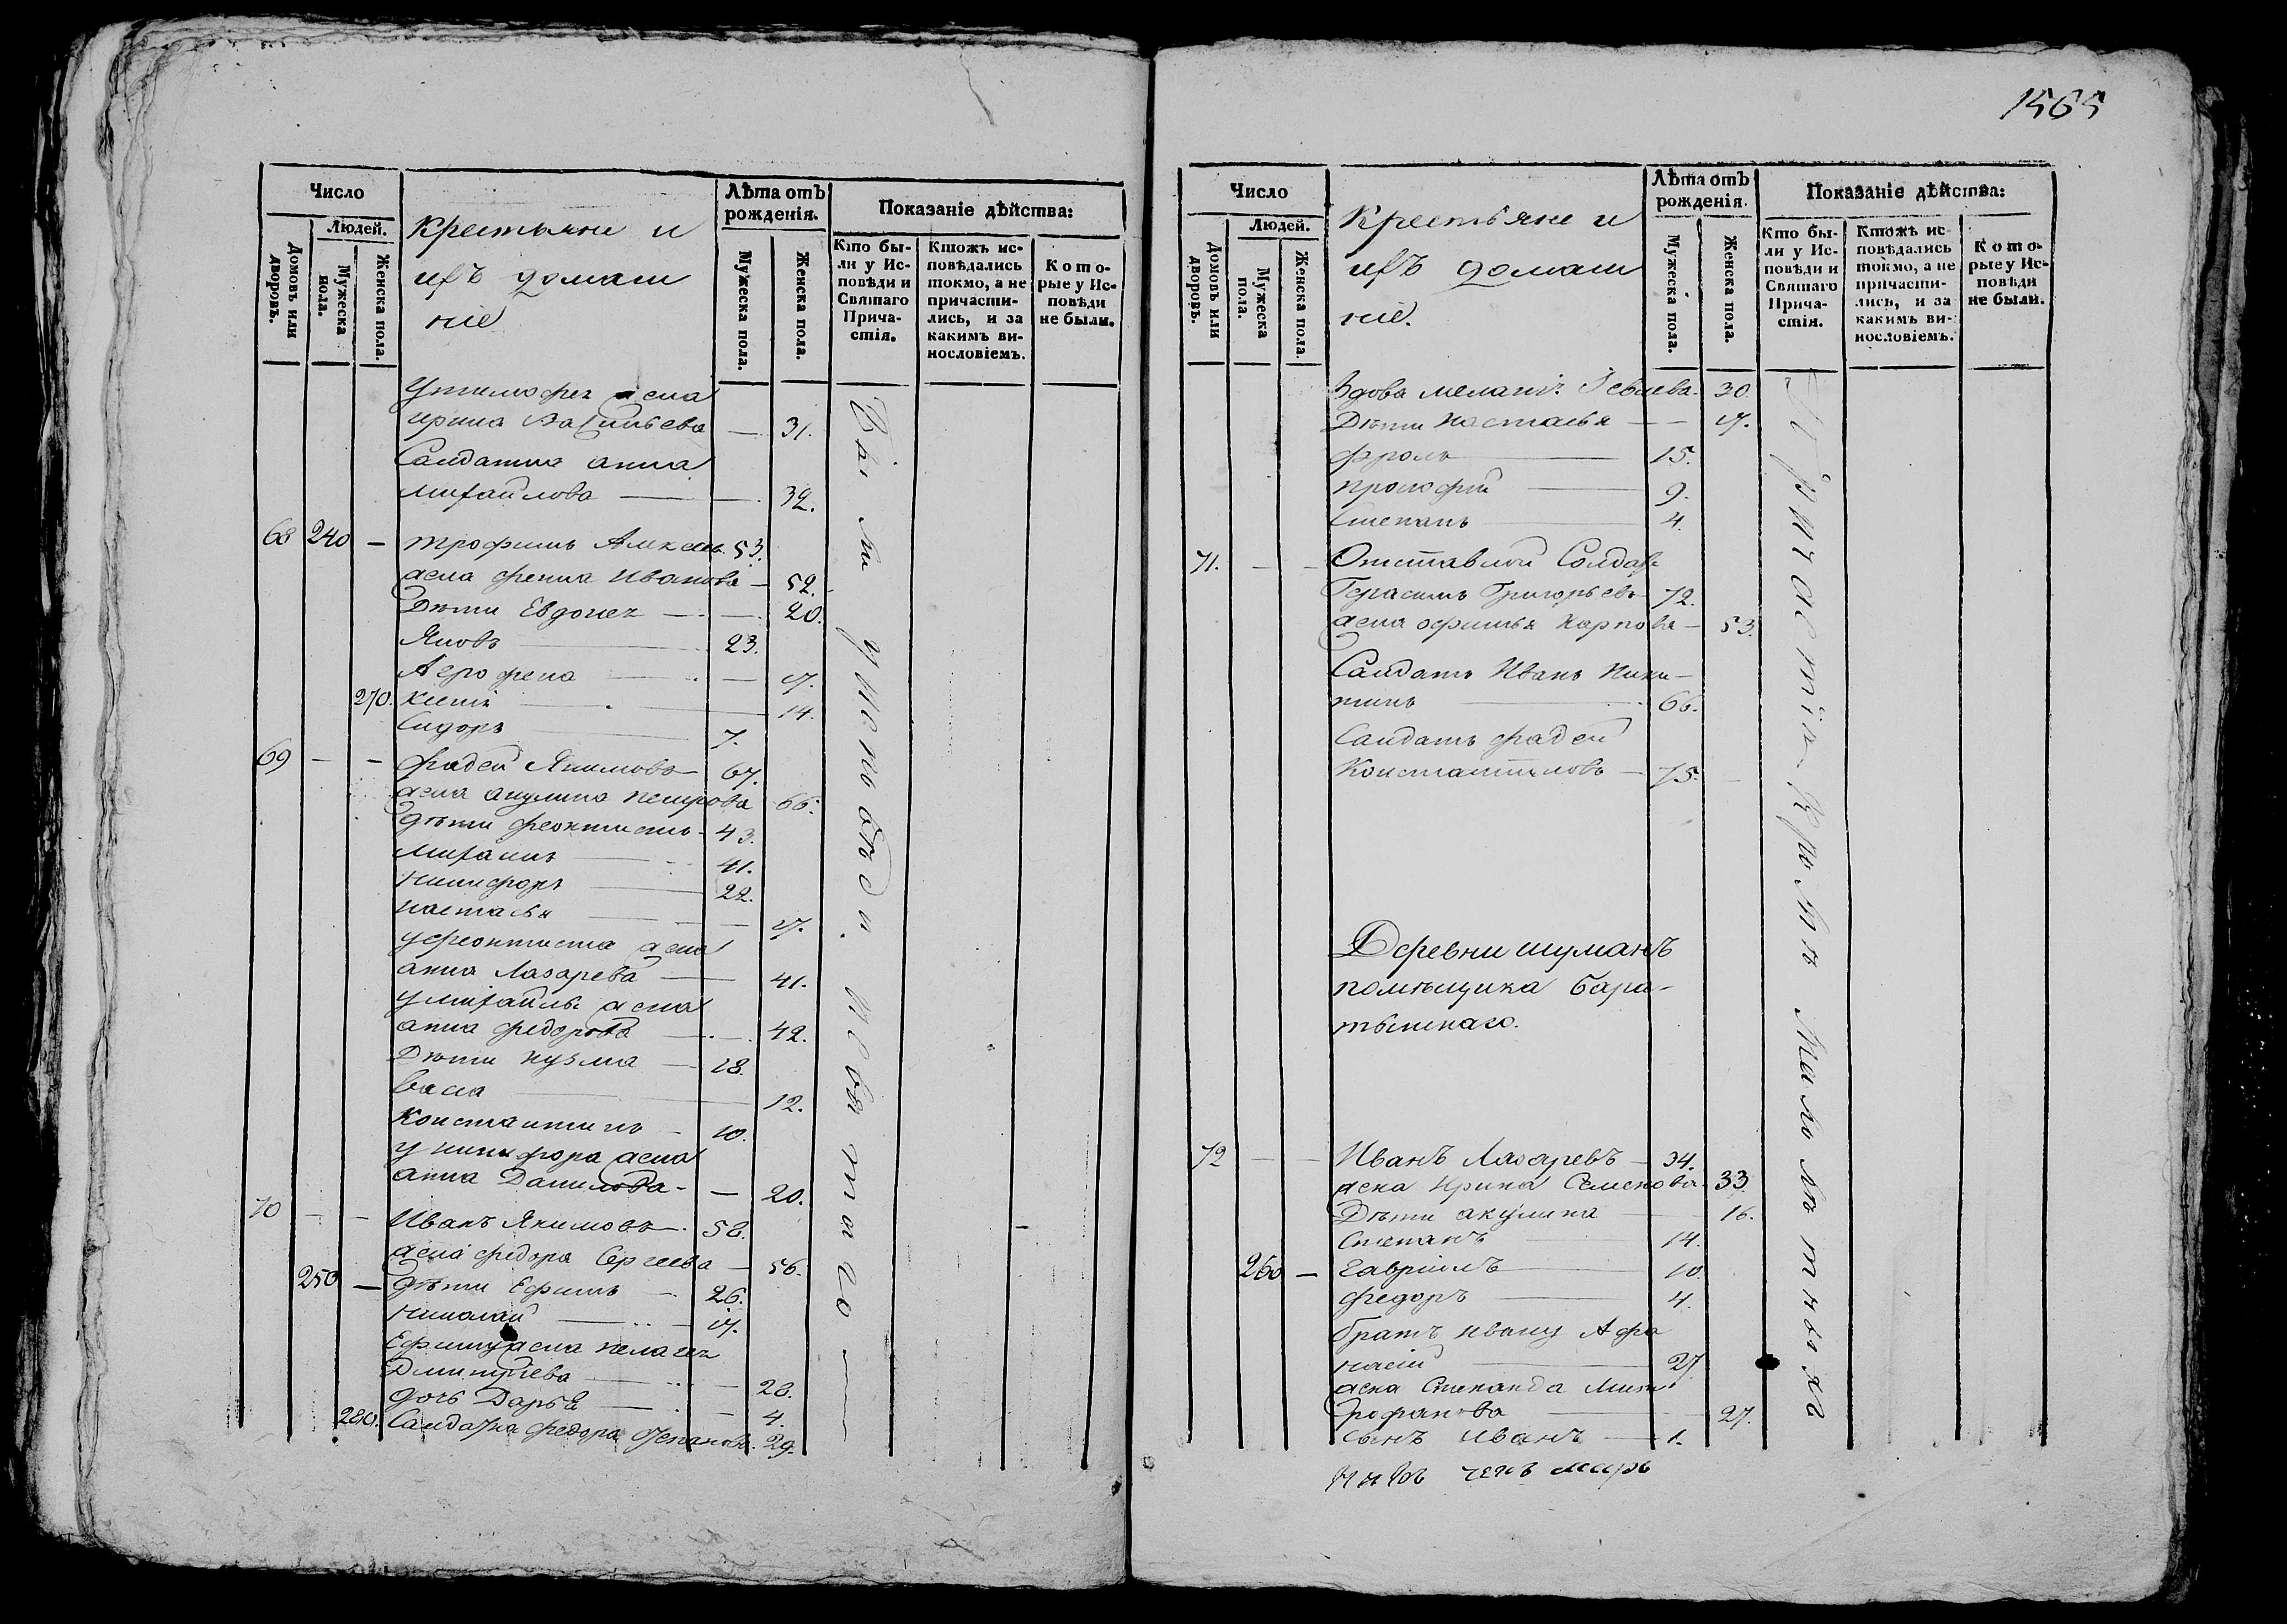 Число
Людей.
Домовъ или дворовъ.
Мужеска пола.
Женска пола.
Крестьяне и
ихъ домаш
ніе
Лѣта отъ рожденія.
Мужеска пола.
Женска пола.
Показаніе дѣйства:
Кто бы-
ли у Ис-
повѣди и
Святаго
Прича-
стія.
Ктожъ ис-
повѣдались
токмо, а не
причасти-
лись, и за
какимъ ви-
нословіемъ.
Кото-
рые у Ис-
повѣди
не были.
жена
ирина Васильева — 31.
Салдатка анна
михайлова — — 32.
68 240 — трофимъ Алексеев. 53.
жена Иванова — 52.
Дѣти Евдокея — — 20.
Яковъ — 23.
Агрофена — — 17.
270. ксенія — 14.
Сидоръ — 7.
69 — — фадей Якимовъ — 67.
жена акулина петрова 66.
дѣти феоктистъ — 43.
михаилъ — 41.
никифоръ — 22.
настасья — — 17.
у феоктиста жена
анна Лазарева — 41.
у михайлы жена
анна федорова — 42.
Дѣти кузма — 18.
васса — 12.
Константинъ — 10.
у никифора жена
анна Данилова — — 20.
70 — — Иванъ Якимовъ — 58.
жена федора Сергеева — 56.
250 — дѣти Ефимъ — 26.
николай — 17.
жена пелагея
Дмитріева — — 28.
дочь Дарья — — 4.
280. Салдатка федора Степанова. 29.
Были у исповѣди и святаго —
1565
Число
Людей.
Домовъ или дворовъ.
Мужеска пола.
Женска пола.
Крестьяне и
ихъ домаш
ніе.
Лѣта отъ рожденія.
Мужеска пола.
Женска пола.
Показаніе дѣйства:
Кто бы-
ли у Ис-
повѣди и
Святаго
Прича-
стія.
Ктожъ ис-
повѣдались
токмо, а не
причасти-
лись, и за
какимъ ви-
нословіемъ.
Кото-
рые у Ис-
повѣди
не были.
Вдова меланія 30.
Дѣти настасья — — 17.
фролъ — 15.
прокофій — 9.
Степанъ — 4.
71. — — Отставной Солдатъ
Герасимъ Григорьевъ 72.
жена офимья карпова — 53.
Салдатъ Иванъ Ники-
тинъ — 66.
Салдатъ фадей
Константиновъ — 75.
Деревни шуманъ
помѣщика Бара-
тынскаго.
72 — — Иванъ Лазаревъ — 34.
жена Ирина Семенова 33
Дѣти акулина — 16.
Степанъ — 14.
260 — Гавріилъ — 10.
федоръ — 4.
братъ ивану Афа
насій — 27
жена Степанида Мит
рофанова — 27.
сынъ иванъ — 1.
Причастія Кромѣ Малолѣтныхъ